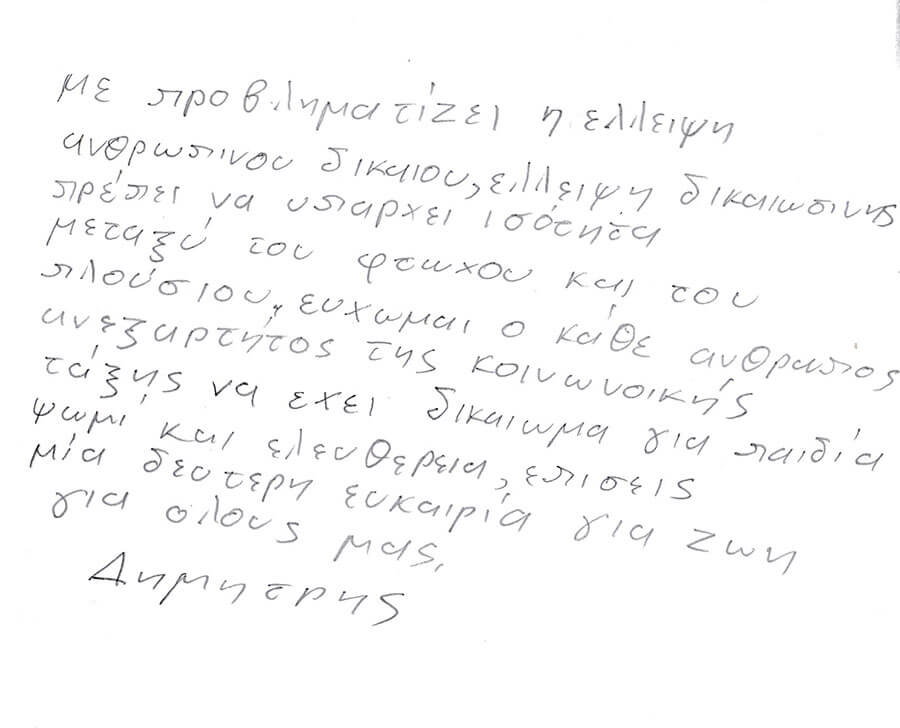 με προβληματίζει η ελλειψη
ανθρωπινου δικαιου, ελλειψη δικαιωσινης
πρέπει να υπαρχει ισότητα
μεταξύ του φτωχου και του
πλούσιου, ευχωμαι ο κάθε ανθρωπος
ανεξαρτήτος της κοινωνοικής
τάξης να εχει δικαιωμα για παιδία
ψωμί και ελευθερεια, επισεις
μία δευτερη ευκαιρία για ζωη
για ολους μας.
Δημητρης